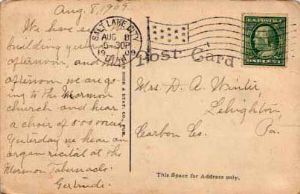 Aug. 8, 1909.
We have seen
building
afternoon, and
afternoon we are going
to the Mormon
church and hear
a choir of 500 voices
Yesterday we hear an
organ recital at the
Mormon Tabernacle.
Gertrude.
SALT LAKE CITY
AUG 8
5-30P
1909
UTAH
Post Card
Mrs. D. A. Wintér
Lehighton
Carbon Co. Pa.
This Space for Address only.